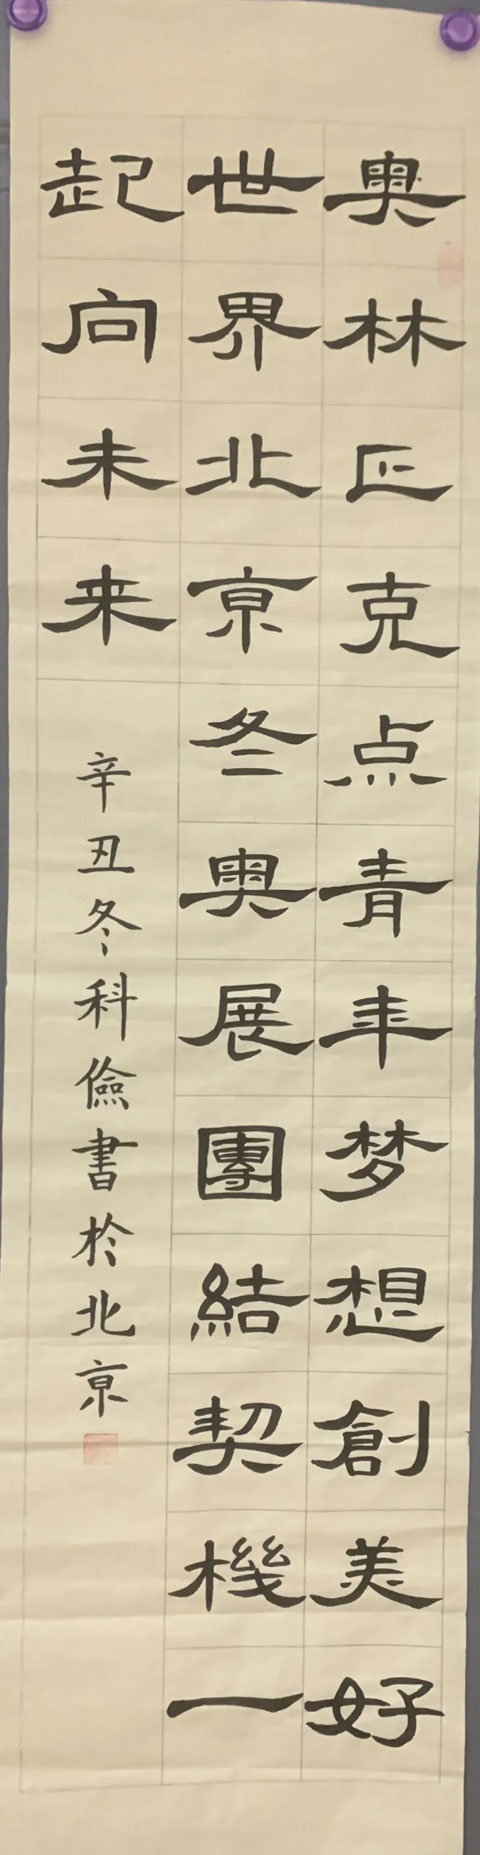 奥林匹克点青年梦想創美好
世界北京冬奥展團結契機一
起向未来
辛丑冬科儉書於北京